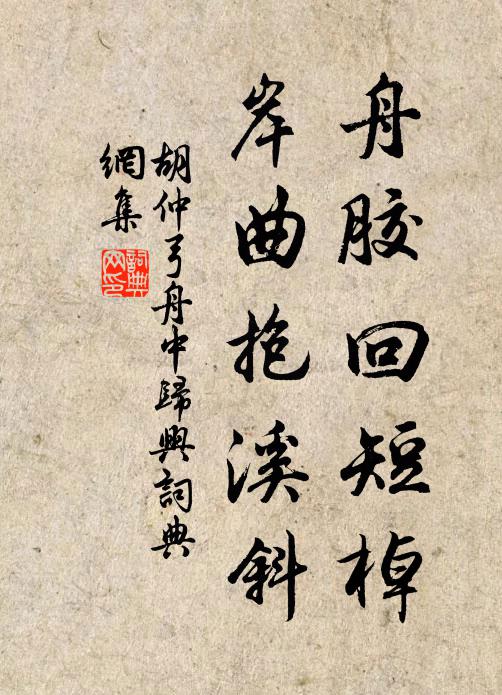 舟胶回短棹
岸曲抱溪斜
胡仲弓舟中歸興詞典
網集
詞典
网印